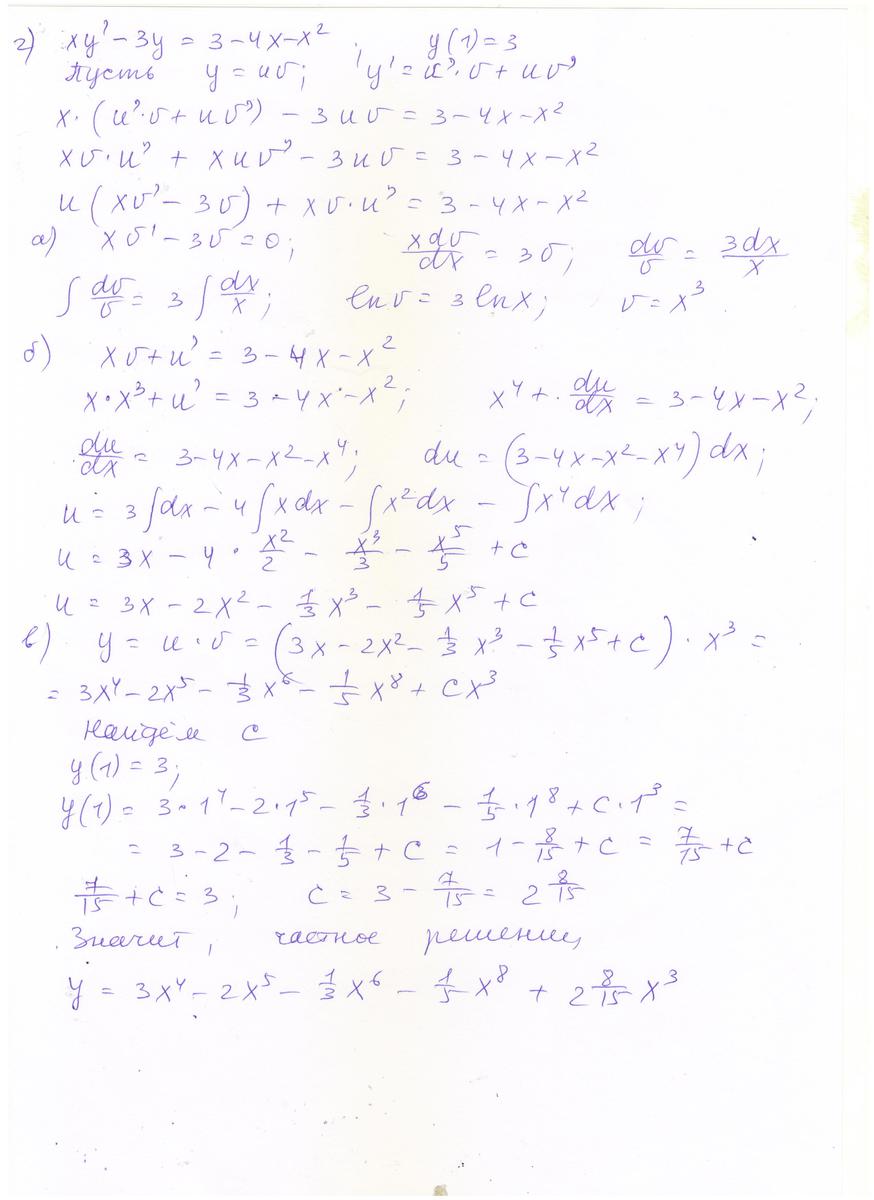 г) xy' − 3y = 3 − 4x − x² ; y(1) = 3
Пусть y = uv; y' = u'·v + uv'
x·(u'·v + uv') − 3uv = 3 − 4x − x²
xv·u' + xuv' − 3uv = 3 − 4x − x²
u(xv' − 3v) + xv·u' = 3 − 4x − x²
а) xv' − 3v = 0; xdv/dx = 3v; dv/v = 3dx/x
∫ dv/v = 3 ∫ dx/x; ln v = 3 ln x; v = x³.
б) xv + u' = 3 − 4x − x²
x·x³ + u' = 3 − 4x − x²; x⁴ + · du/dx = 3 − 4x − x²;
du/dx = 3 − 4x − x² − x⁴; du = (3 − 4x − x² − x⁴) dx;
u = 3∫dx − 4∫xdx − ∫x²dx − ∫x⁴dx;
u = 3x − 4 · x²/2 − x³/3 − x⁵/5 + c
u = 3x − 2x² − 1/3 x³ − 1/5 x⁵ + c
в) y = u·v = (3x − 2x² − 1/3 x³ − 1/5 x⁵ + c) · x³ =
= 3x⁴ − 2x⁵ − 1/3 x⁶ − 1/5 x⁸ + cx³
Найдём c
y(1) = 3;
y(1) = 3·1⁴ − 2·1⁵ − 1/3·1⁶ − 1/5·1⁸ + c·1³ =
= 3 − 2 − 1/3 − 1/5 + c = 1 − 8/15 + c = 7/15 + c
7/15 + c = 3; c = 3 − 7/15 = 2 8/15
Значит, частное решение
y = 3x⁴ − 2x⁵ − 1/3 x⁶ − 1/5 x⁸ + 2 8/15 x³